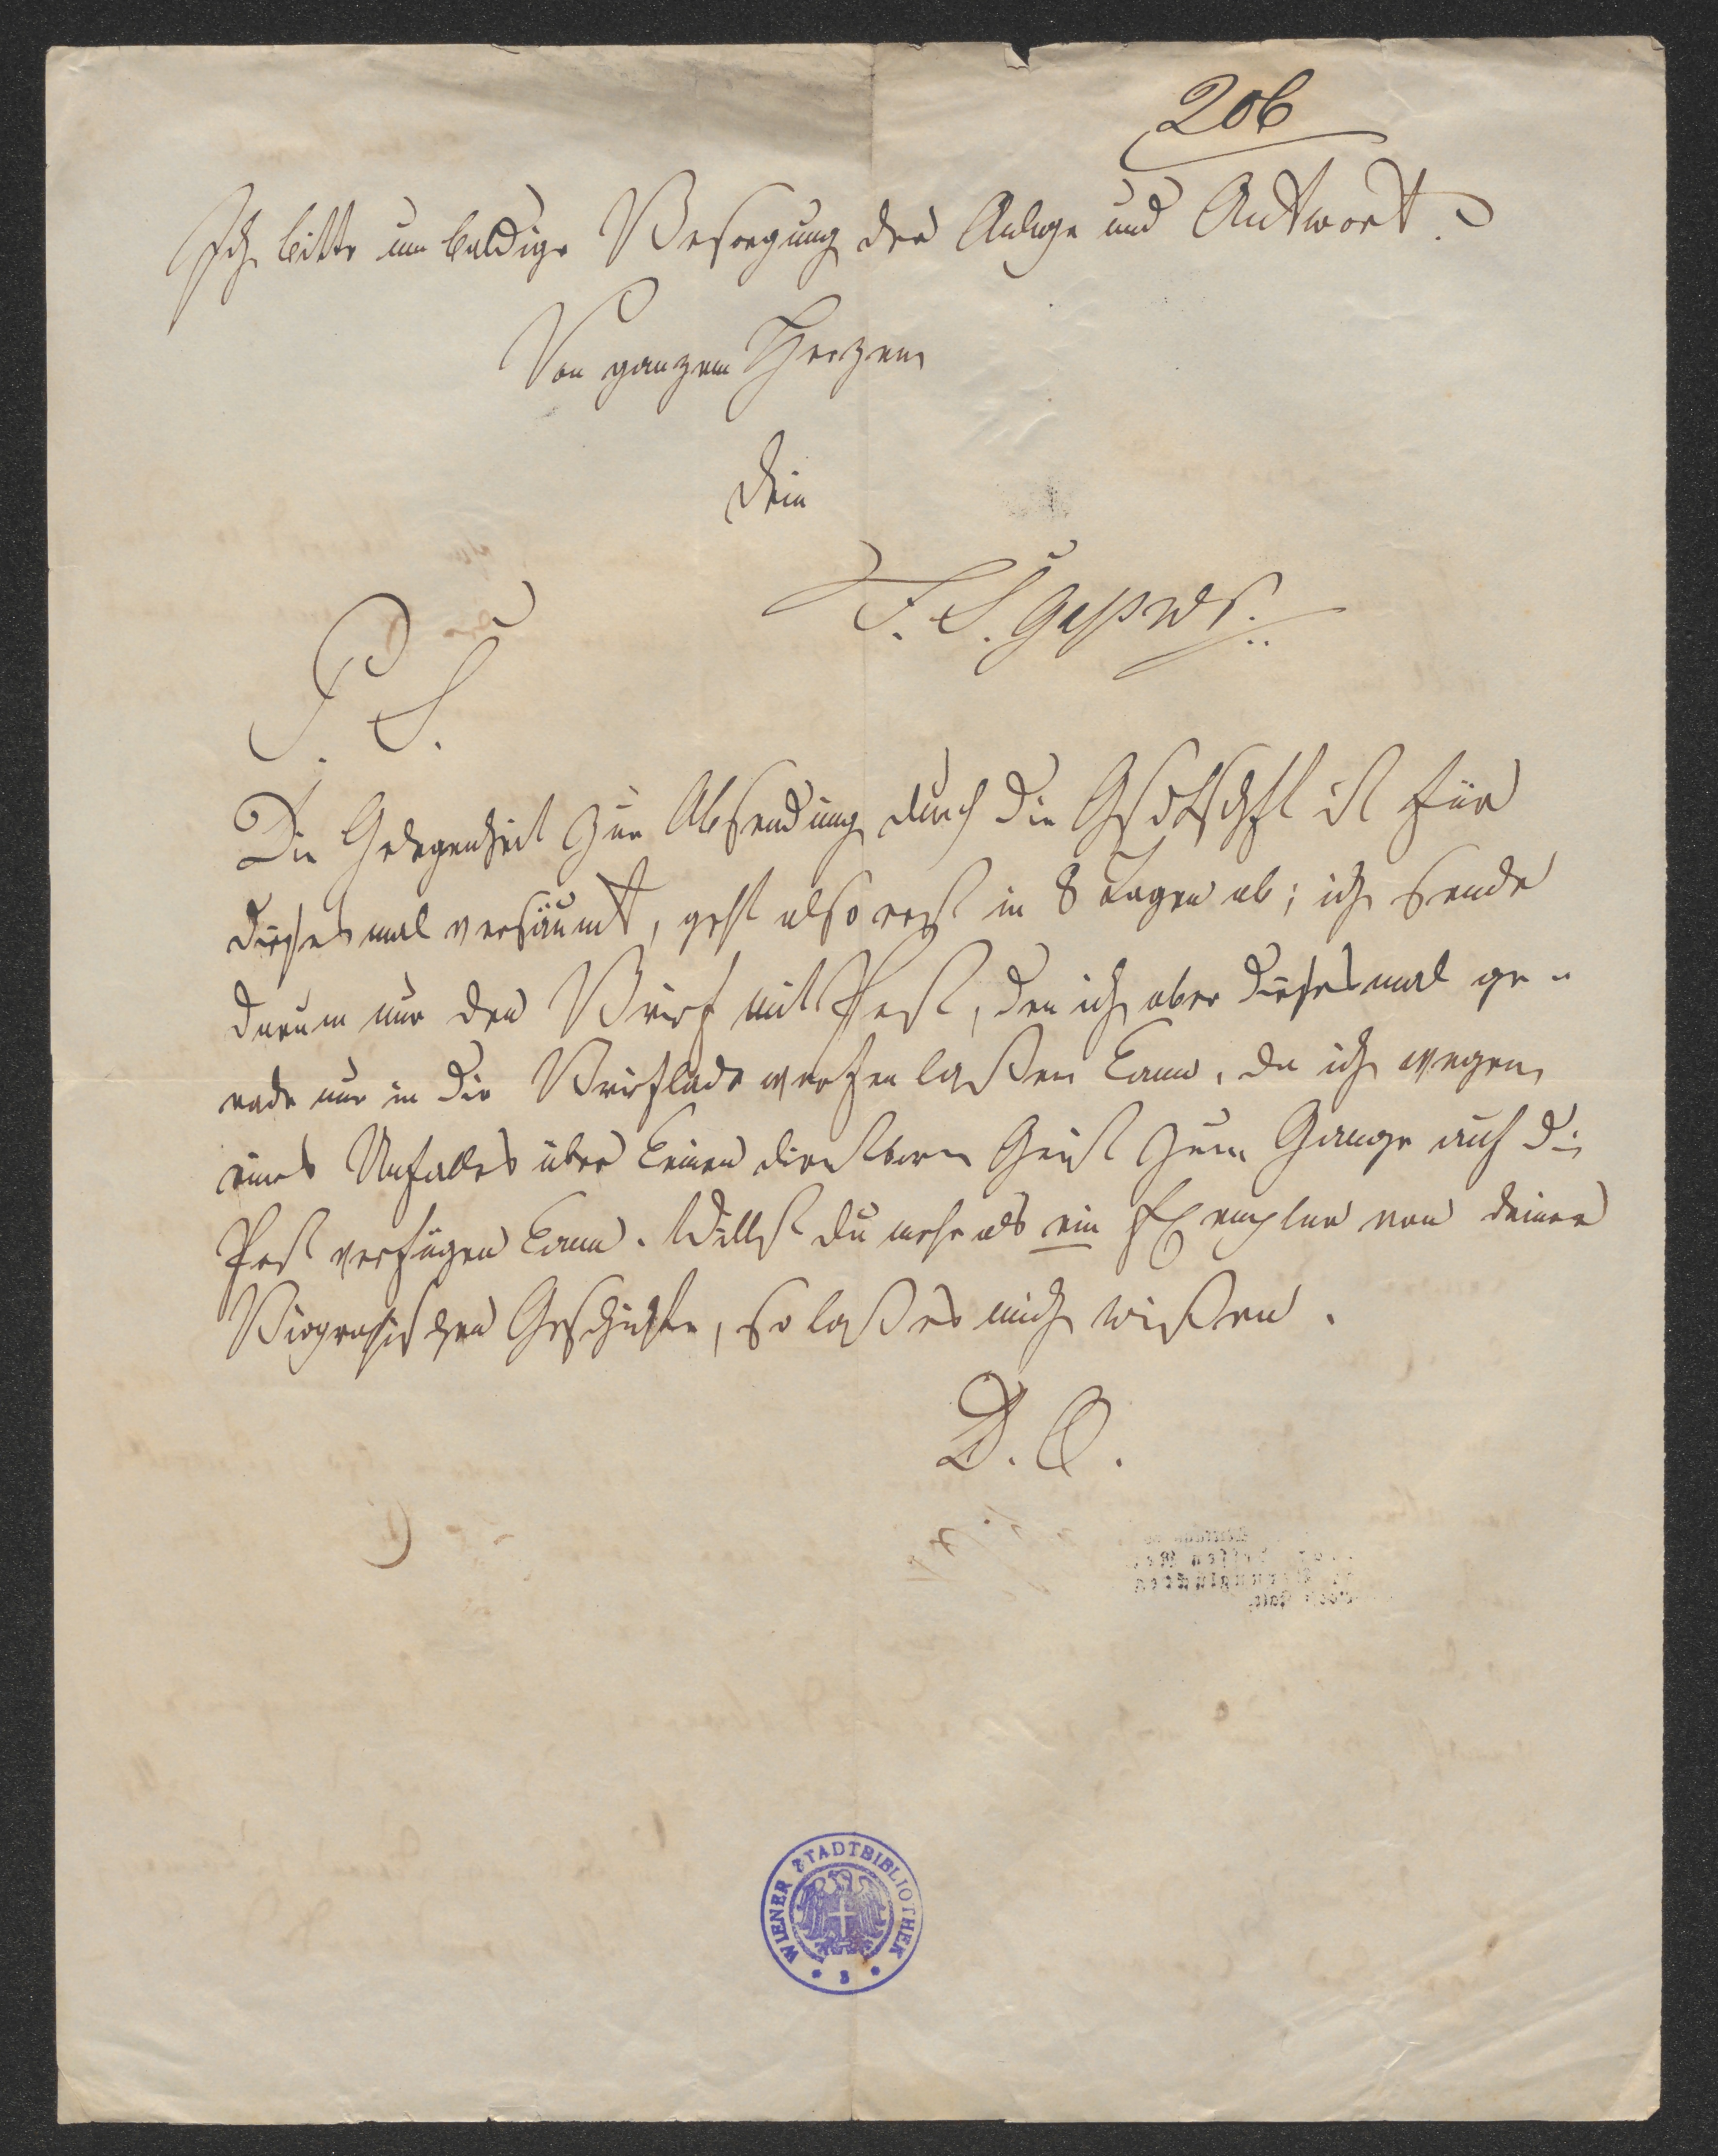 206
Ich bitte um baldige Besorgung der Anlage und Antwort.
Von ganzem Herzen
Dein
P. S.
Die Gelegenheit zur Absendung durch die ist für
dieses mal versäumt, geht also erst in 8 Tagen ab; ich sende
darum nur den Brief mit Post, den ich aber dieses mal ge-
rade nur in die Brieflade werfen laßen kann, da ich wegen
eines Unfalles über keinen dienstbaren Geist zum Gange auf die
Post verfügen kann. Willst du mehr als ein Exemplar von deiner
Biographischen Geschichte, so laß es mich wißen.
D. O.
WIENER STADTBIBLIOTHEK